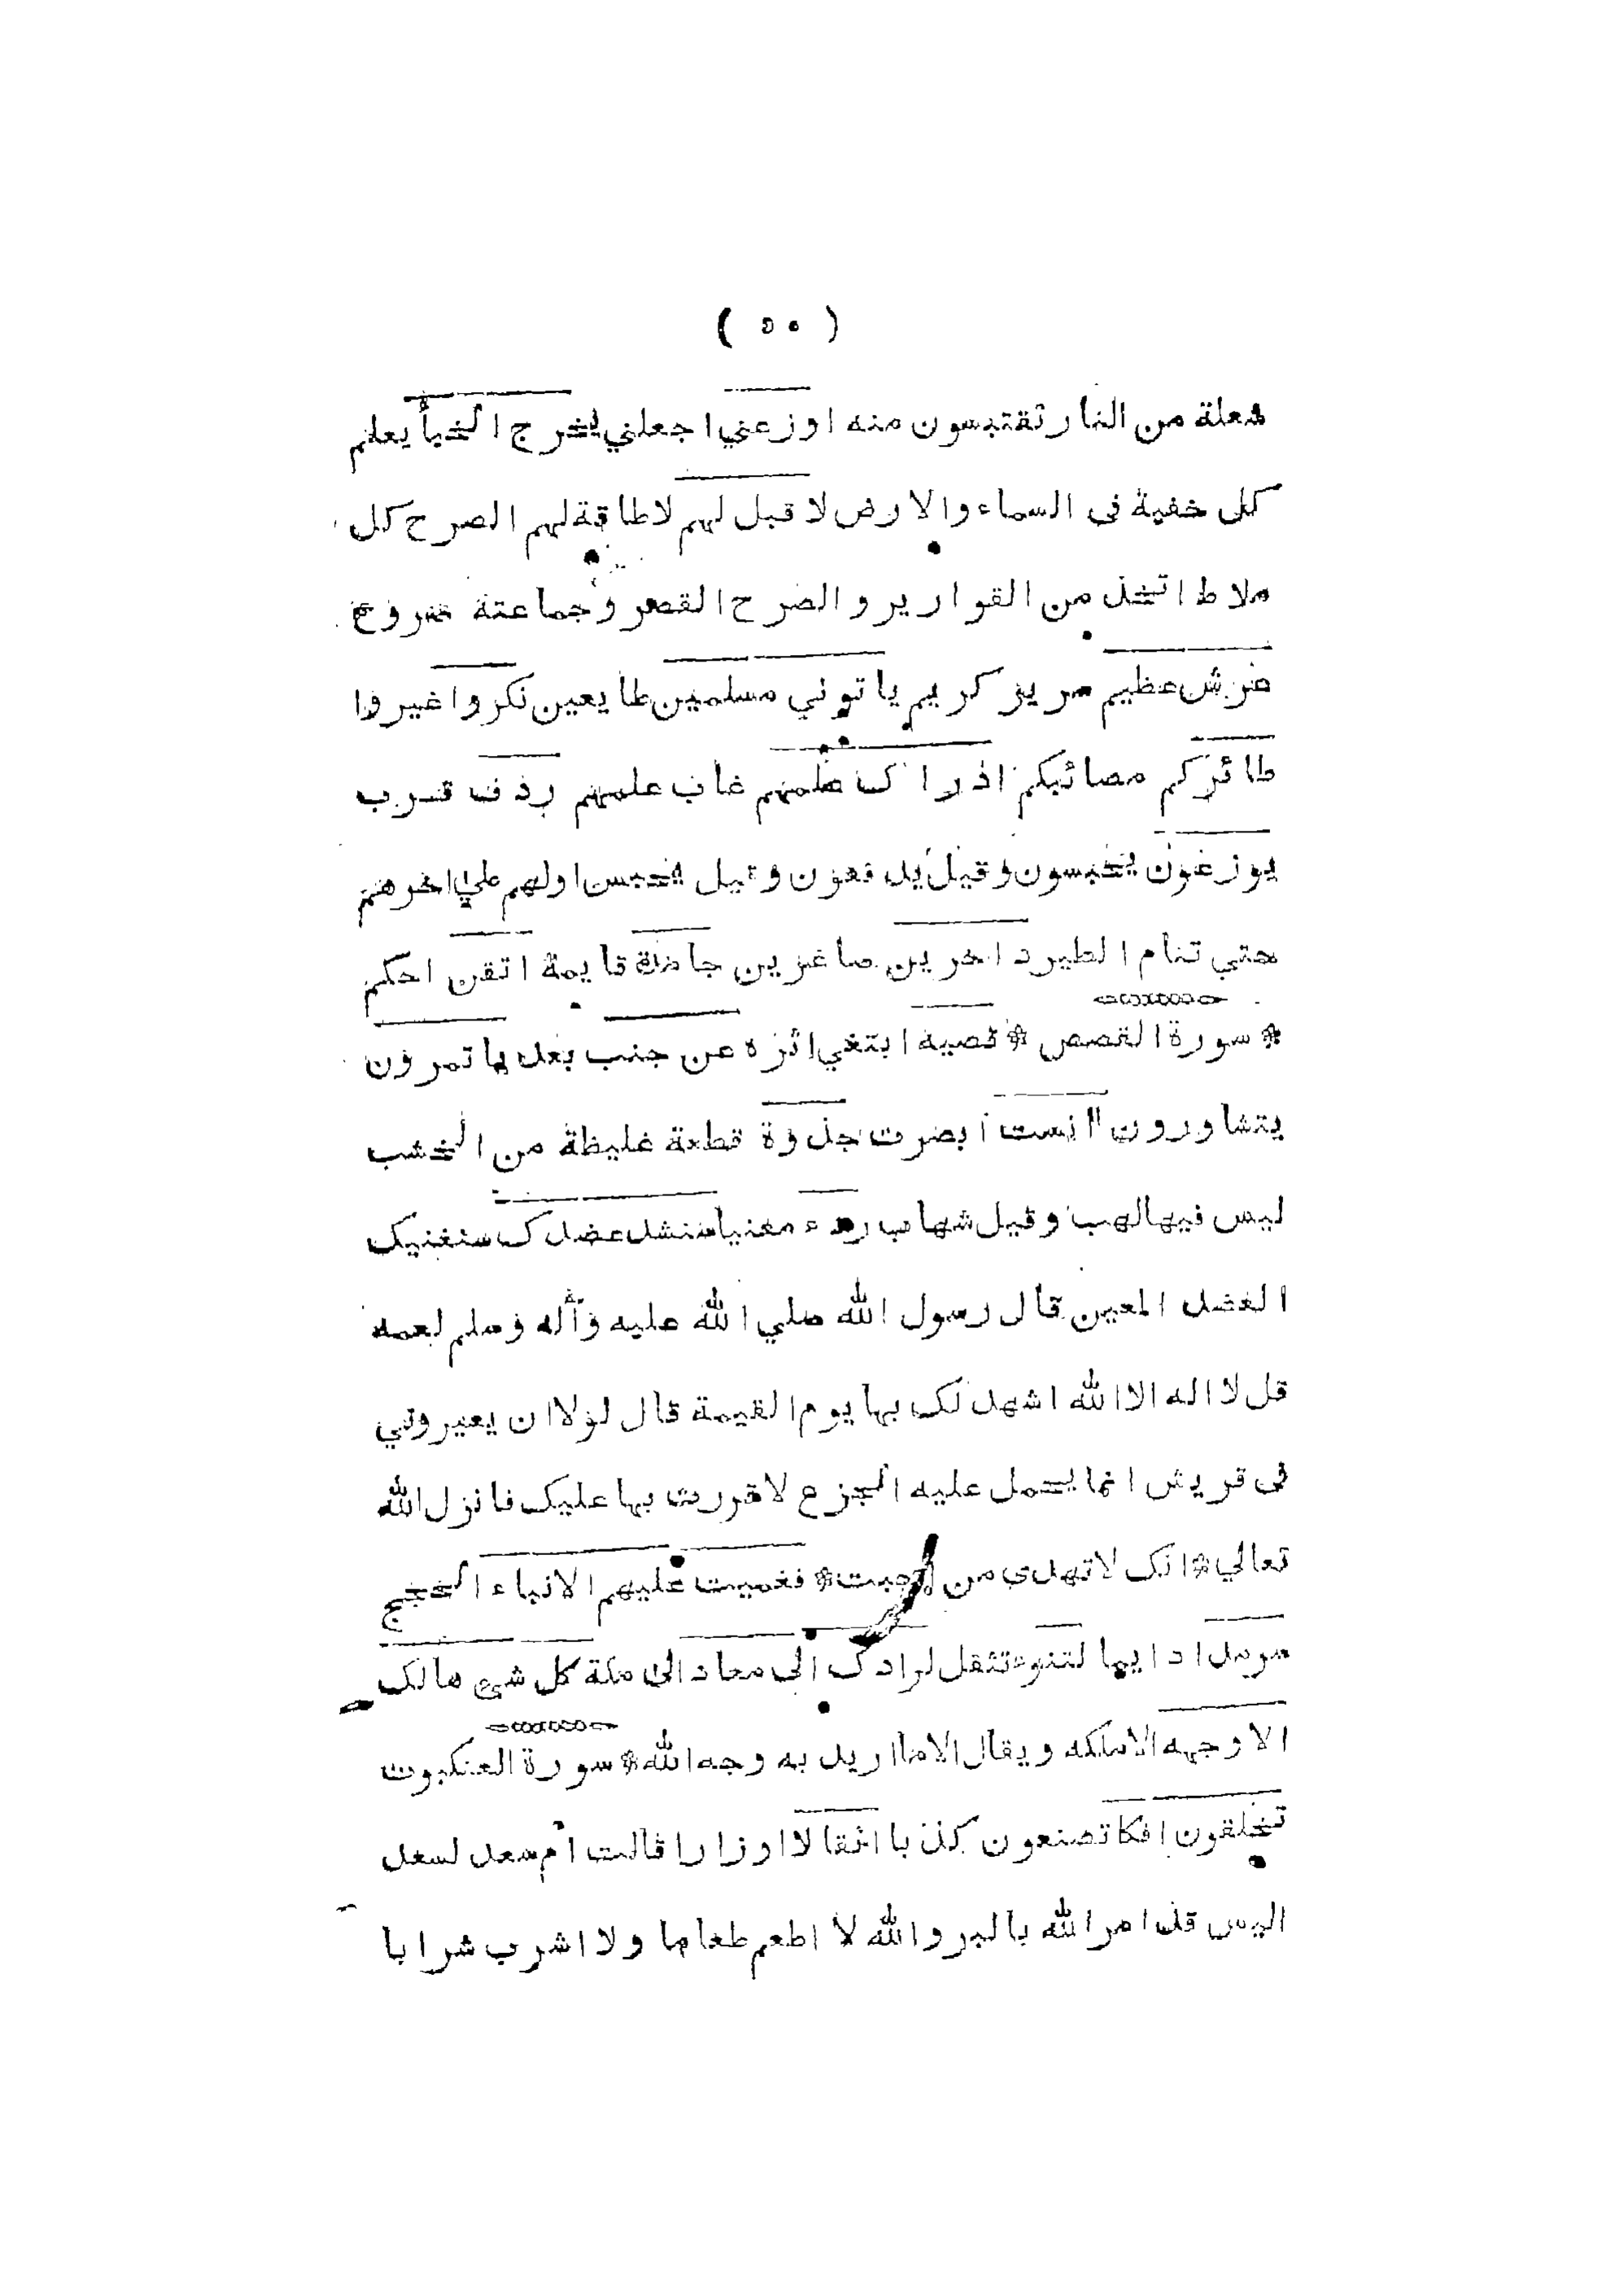 ( ٥٠ )
شعلة من النار تقتبسون منه اوزعني اجعلني يخرج الخبأ يعلم
كل خفية في السماء والارض لا قبل لهم لا طاقة لهم الصرح كل
ملاط اتخذ من القوارير والصرح القصر وجماعته صروح
عرش عظيم سرير كريم ياتوني مسلمين طايعين نكروا غيروا
طائركم مصائبكم ادراك علمهم غاب علمهم ردف قرب
يوزعون يحبسون وقيل يدفعون وقيل يحبس اولهم علي اخرهم
حتي تنام الطير داخرين صاغرين جامدة قايمة اتقن احكم
* سورة القصص * قصيه ابتغي اثره عن جنب بعد ياتمرون
يتشاورون اانست ابصرت جذوة قطعة غليظة من الخشب
ليس فيها لهب وقيل شهاب ردء معنيا سنشد عضدك سنغنيك
العضد المعين قال رسول الله صلي الله عليه وآله وسلم لعمه
قل لا اله الا الله اشهد لك بها يوم القيمة قال لولا ان يعيروني
في قريش انما يحمل عليه الجزع لاقررت بها عليك فانزل الله
تعالي * انك لا تهدي من احببت * فعميت عليهم الانباء الحجج
سرمدا دايما لتنوء تثقل لرادك الى معاد الى مكة كل شيء هالك
الا وجهه الا ملكه ويقال الا ما اريد به وجه الله * سورة العنكبوت
تخلقون افكا تصنعون كذبا اثقالا اوزارا قالت ام سعد لسعد
اليس قد امر الله بالبر والله لا اطعم طعاما ولا اشرب شرابا